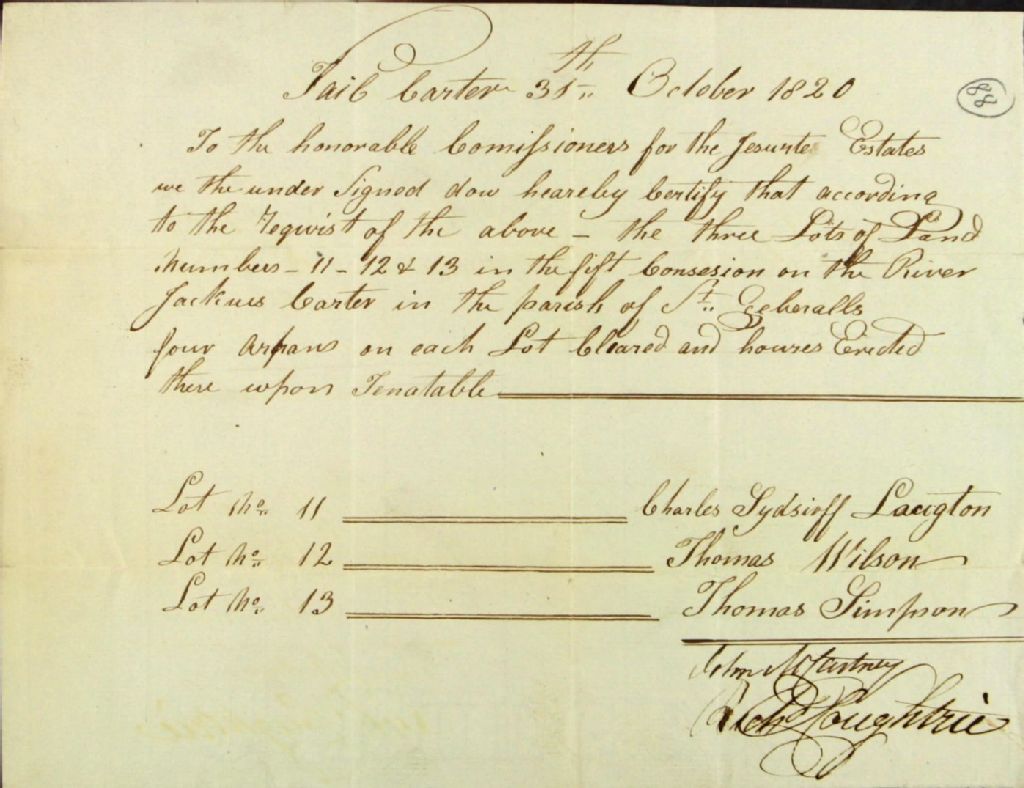 Jaic Carter 31th October 1820
88
To the honorable Comissioners for the Jesuntes Estates
we the under Signed dow heareby Certify that according
to the Requist of the above - the three Lots of Land
Numbers - 11 - 12 & 13 in the fift Consesion on the River
Jackues Carter in the parish of St.
four arpans on each Lot Cleared and houses Erected
there upon Tenatable
Lot No. 11 Charles Sydsirff Laugton
Lot No. 12 Thomas Wilson
Lot No. 13 Thomas Simpson
John McCartney
Richd Houghtrie